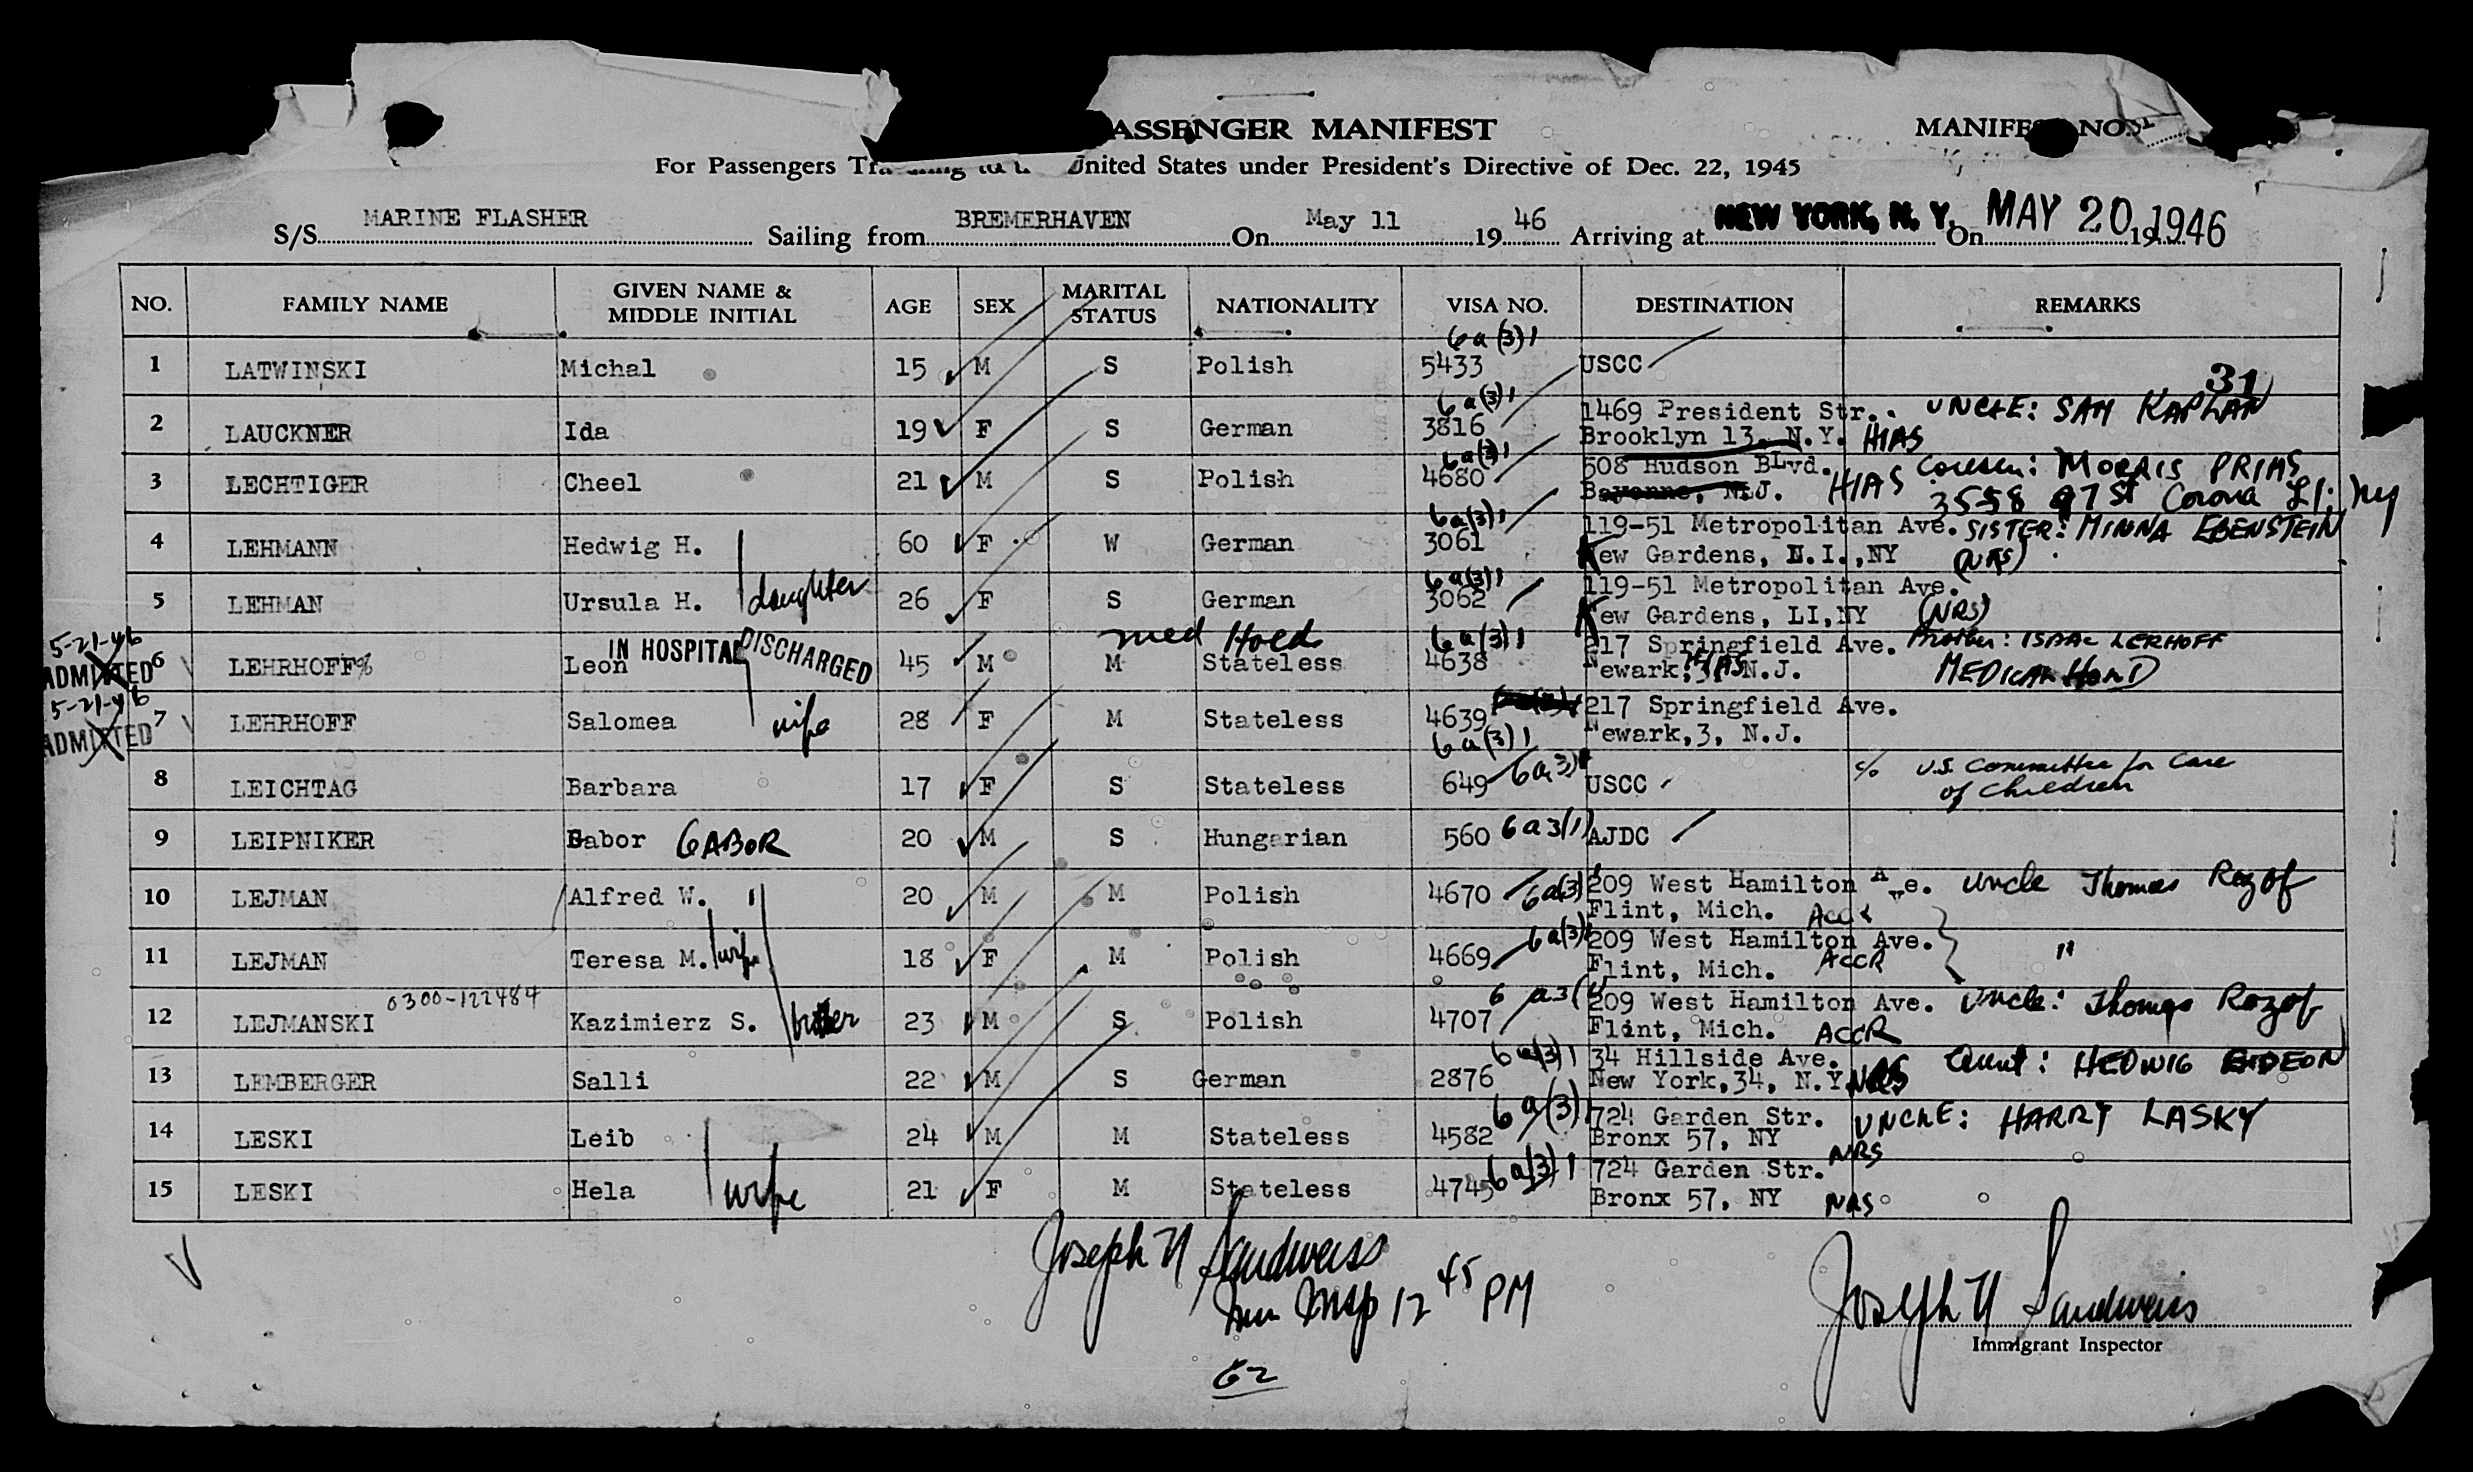 ASSENGER MANIFEST
MANIFE NO.
For Passengers Tra United States under President's Directive of Dec. 22, 1945
S/S MARINE FLASHER Sailing from BREMERHAVEN On May 11 19 46 Arriving at NEW YORK, N. Y. On MAY 20 19 1946
NO. FAMILY NAME GIVEN NAME & MIDDLE INITIAL AGE SEX MARITAL STATUS NATIONALITY VISA NO. DESTINATION REMARKS
6a(3)1
1 LATWINSKI Michal 15 M S Polish 5433 USCC
31
6a(3)1 1469 President Str. UNCLE: SAM KAPLAN
2 LAUCKNER Ida 19 F S German 3816 Brooklyn 13, N.Y. HIAS
6a(3)1 508 Hudson Blvd. Cousin: MORRIS PRIMS
3 LECHTIGER Cheel 21 M S Polish 4680 Bayonne, N.J. HIAS 3558 97 St Corona L.I. NY
6a(3)1 119-51 Metropolitan Ave. SISTER: MINNA EBENSTEIN
4 LEHMANN Hedwig H. 60 F W German 3061 Kew Gardens, L.I.,NY (NRS)
6a(3)1 119-51 Metropolitan Ave.
5 LEHMAN Ursula H. daughter 26 F S German 3062 Kew Gardens, LI,NY (NRS)
5-21-46 IN HOSPITAL DISCHARGED med Hold 6a(3)1 217 Springfield Ave. Brother: ISAAC LERHOFF
ADMITTED 6 LEHRHOFF Leon 45 M M Stateless 4638 Newark,3, N.J. HIAS MEDICAL HOLD
5-21-46 217 Springfield Ave.
ADMITTED 7 LEHRHOFF Salomea wife 28 F M Stateless 4639 Newark,3, N.J.
6a(3)1
8 LEICHTAG Barbara 17 F S Stateless 649 6a3)1 USCC c/o U.S. Committee for Care
of Children
9 LEIPNIKER Babor GABOR 20 M S Hungarian 560 6a3(1) AJDC
10 LEJMAN Alfred W. 20 M M Polish 4670 6a(3)1 209 West Hamilton Ave. Uncle Thomas Rozof
Flint, Mich. ACCR
11 LEJMAN Teresa M. wife 18 F M Polish 4669 6a(3)1 209 West Hamilton Ave. "
Flint, Mich. ACCR
0300-122484
12 LEJMANSKI Kazimierz S. brother 23 M S Polish 4707 6a3(1) 209 West Hamilton Ave. Uncle: Thomas Rozof
Flint, Mich. ACCR
6a(3)1 34 Hillside Ave. Aunt: HEDWIG GIDEON
13 LEMBERGER Salli 22 M S German 2876 New York,34, N.Y. NRS
6a(3)1 724 Garden Str. UNCLE: HARRY LASKY
14 LESKI Leib 24 M M Stateless 4582 Bronx 57, NY NRS
6a(3)1 724 Garden Str.
15 LESKI Hela wife 21 F M Stateless 4745 Bronx 57, NY NRS
Joseph N Sandweiss
Imm Insp 12 45 PM
62
Joseph N Sandweiss
Immigrant Inspector